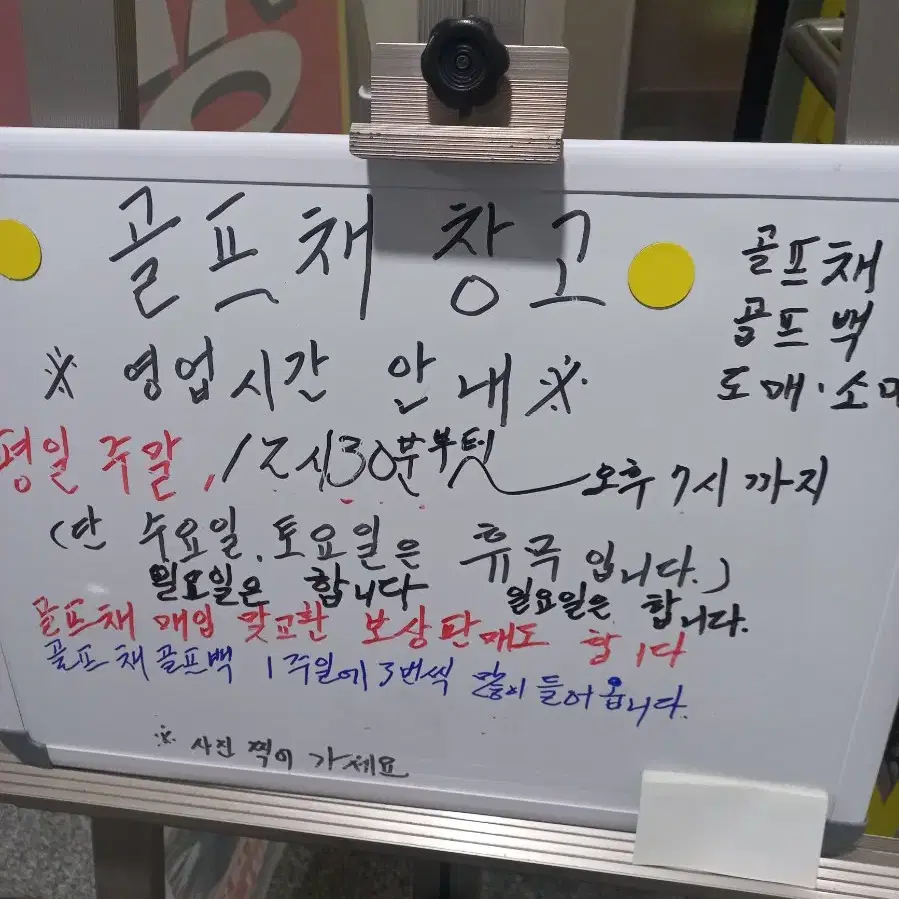 골프채 창고
골프채
골프백
도매·소매
※ 영업시간 안내 ※
평일 주말, 12시30분부텃 오후 7시까지
(단 수요일, 토요일은 휴무입니다.)
일요일은 합니다 일요일은 합니다.
골프채 매입 맞교환 보상판매도 합니다
골프채 골프백 1주일에 3번씩 많이 들어옵니다.
※ 사진 찍어 가세요